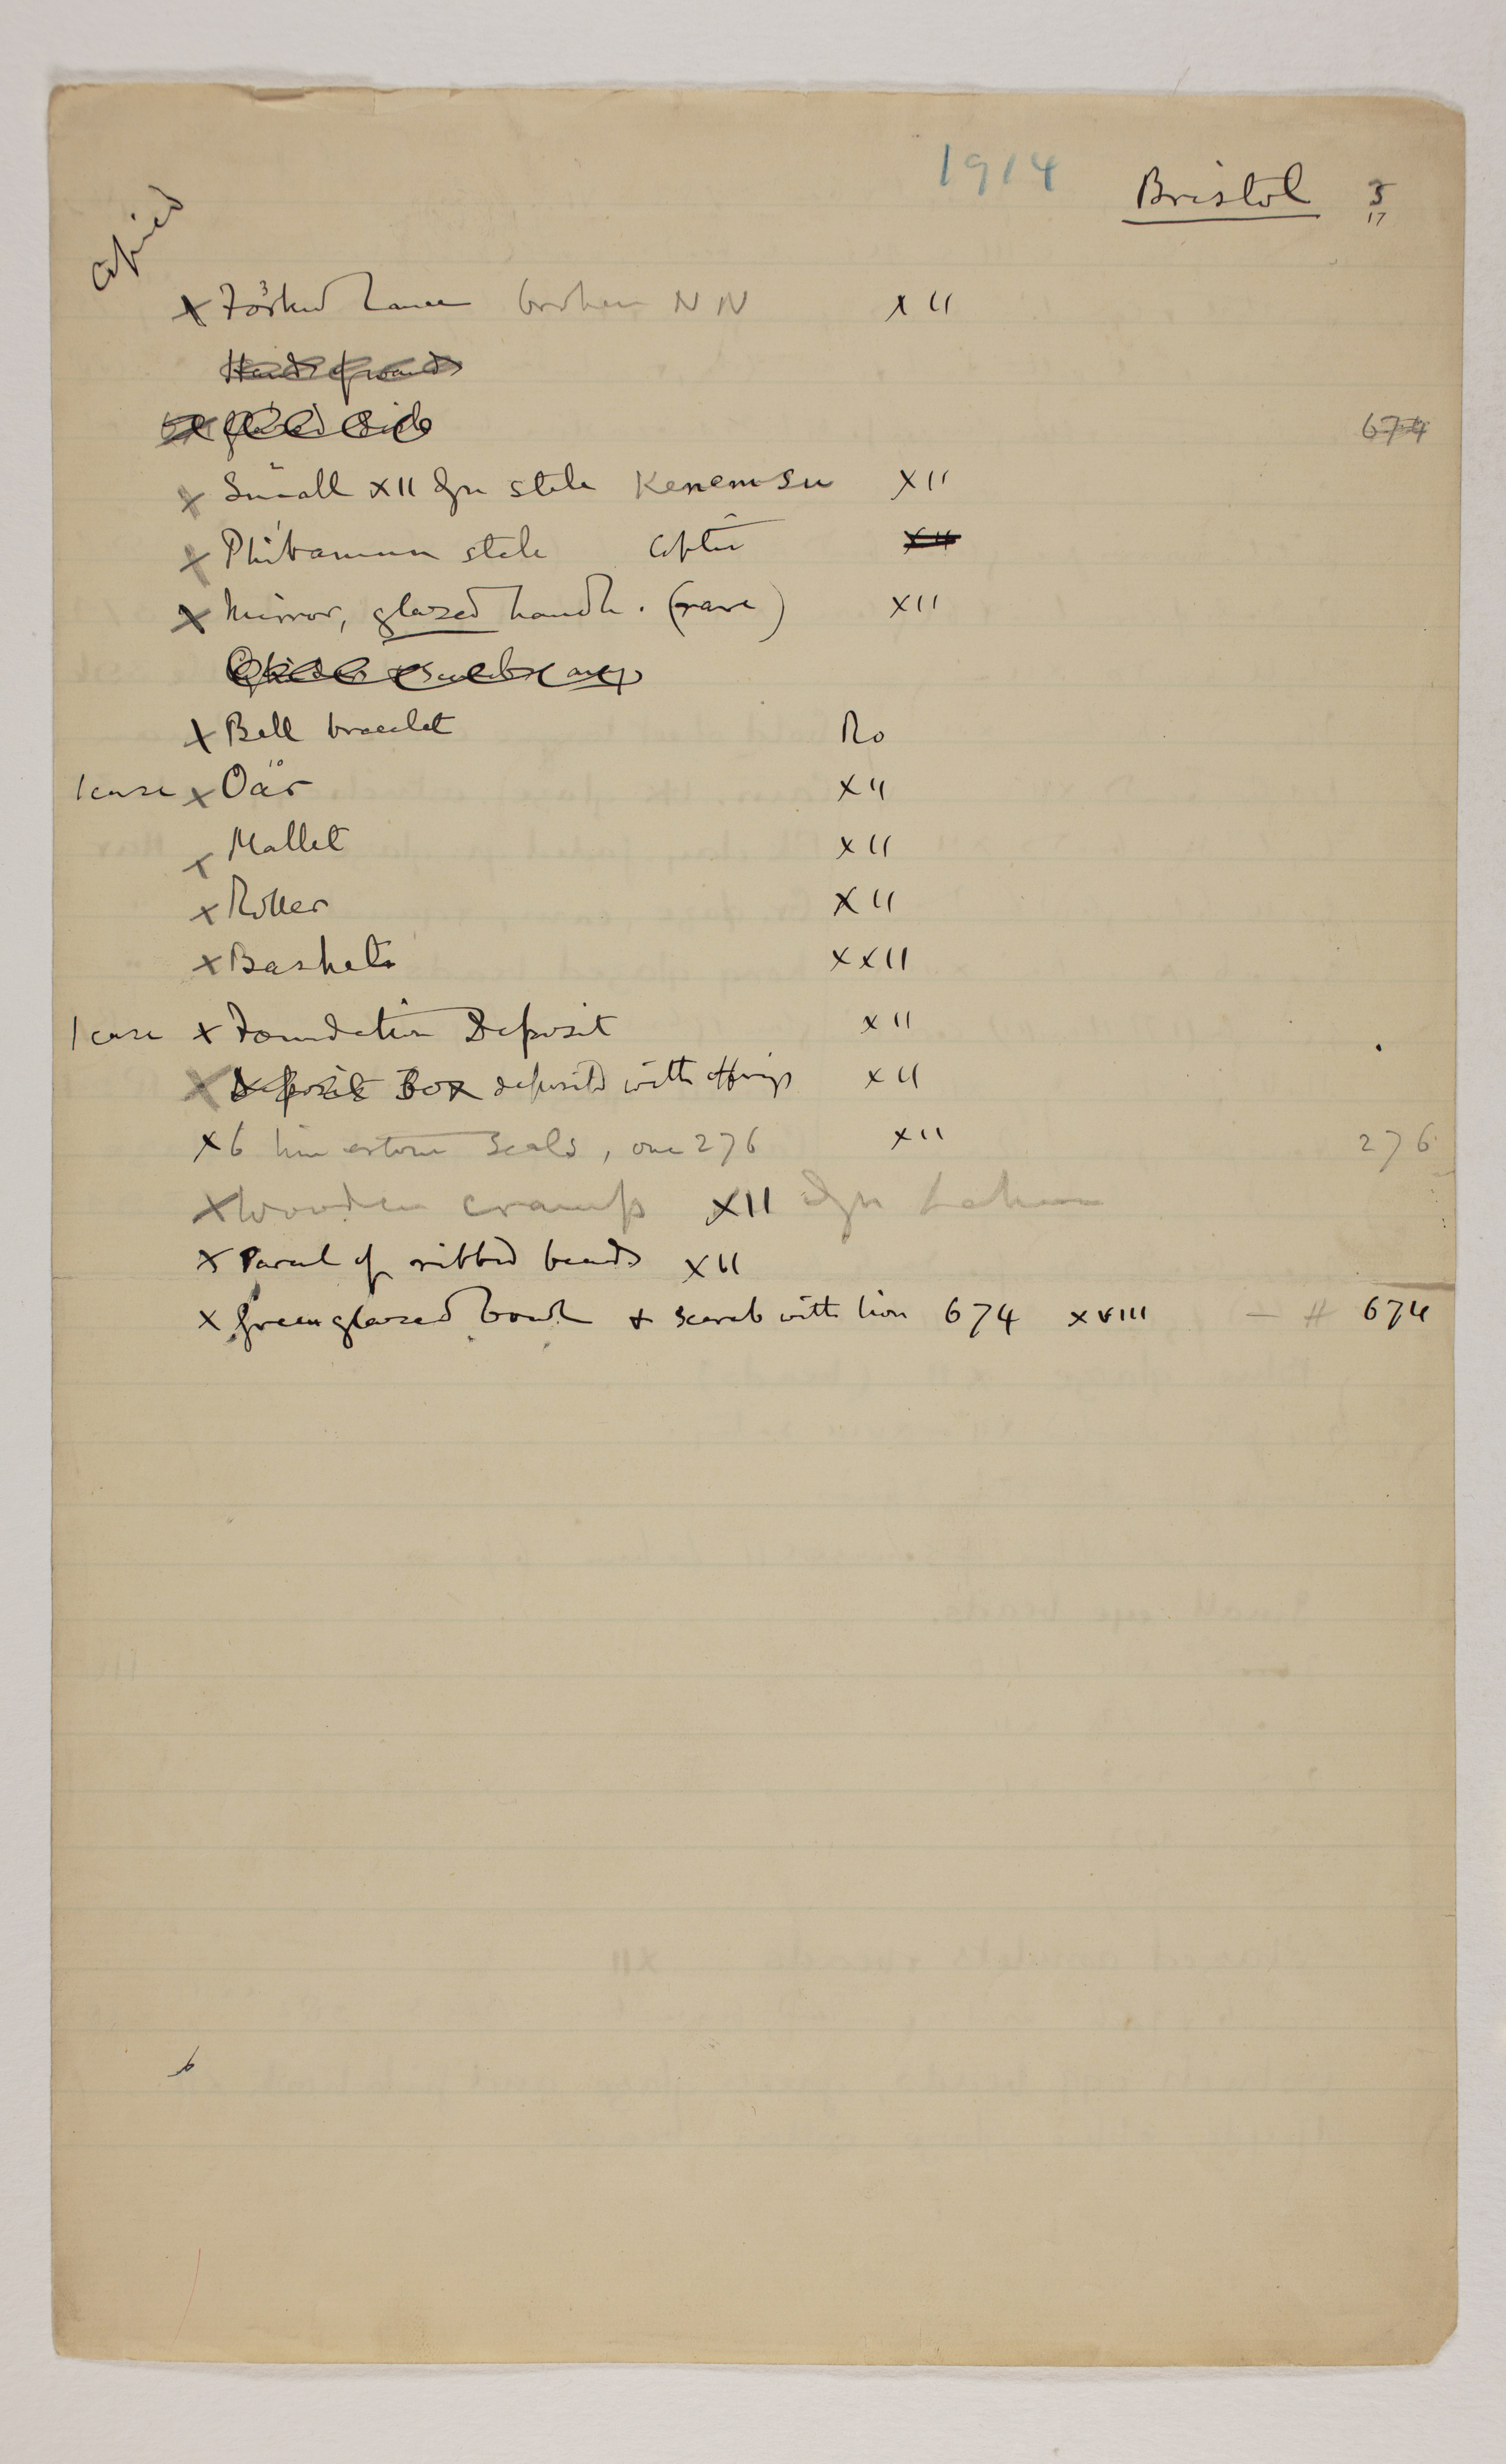 1914 Bristol 5
17
Copied
x Forked Lance broken NN XII
Heads of wands
674
x Small XII Dyn stele Kenemsu XII
x Phibamun stele Coptic XII
x Mirror, glazed handle. (rare) XII
x Bell bracelet Ro
1 case x Oar XII
x Mallet XII
x Roller XII
x Baskets XXII
1 case x Foundation Deposit XII
x Deposit Box deposits with offerings XII
x 6 limestone seals, one 276 XII 276
x Wooden cramp XII Dyn Lahun
x Parcel of ribbed beads XII
x Green glazed bowl + scarab with lion 674 XVIII — # 674